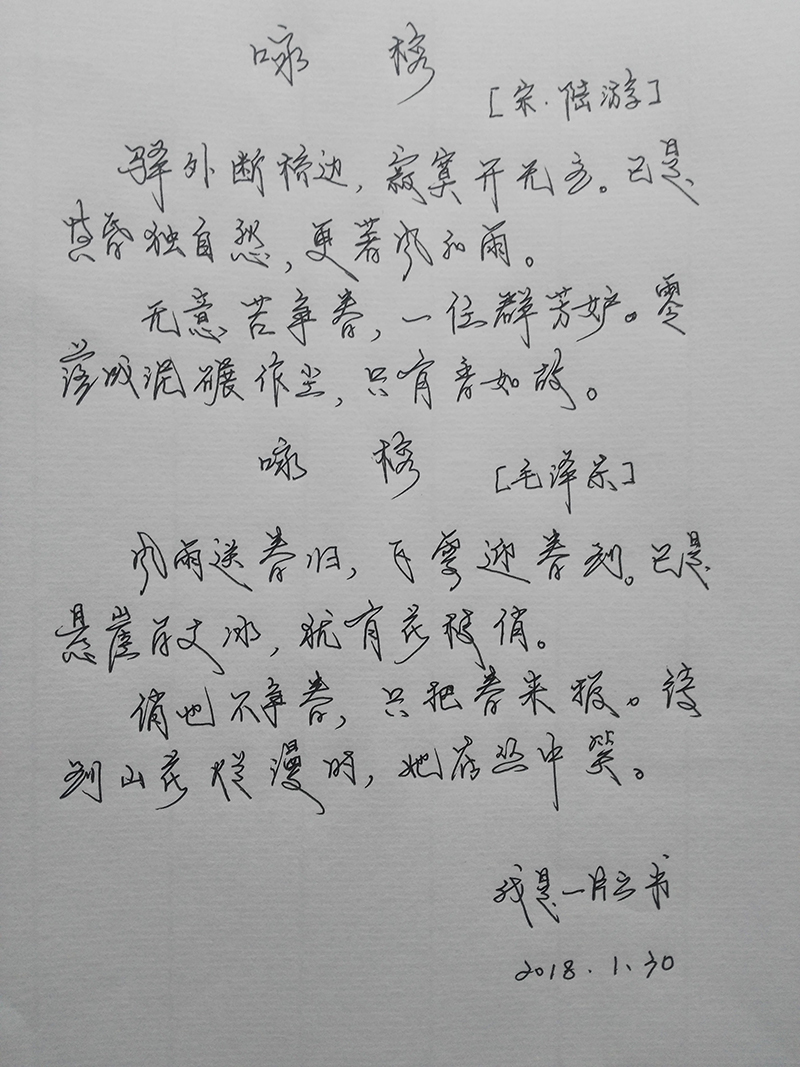 咏 梅
[宋·陆游]
驿外断桥边，寂寞开无主。已是
黄昏独自愁，更著风和雨。
无意苦争春，一任群芳妒。零
落成泥碾作尘，只有香如故。
咏 梅
[毛泽东]
风雨送春归，飞雪迎春到。已是
悬崖百丈冰，犹有花枝俏。
俏也不争春，只把春来报。待
到山花烂漫时，她在丛中笑。
我是一片云书
2018.1.30